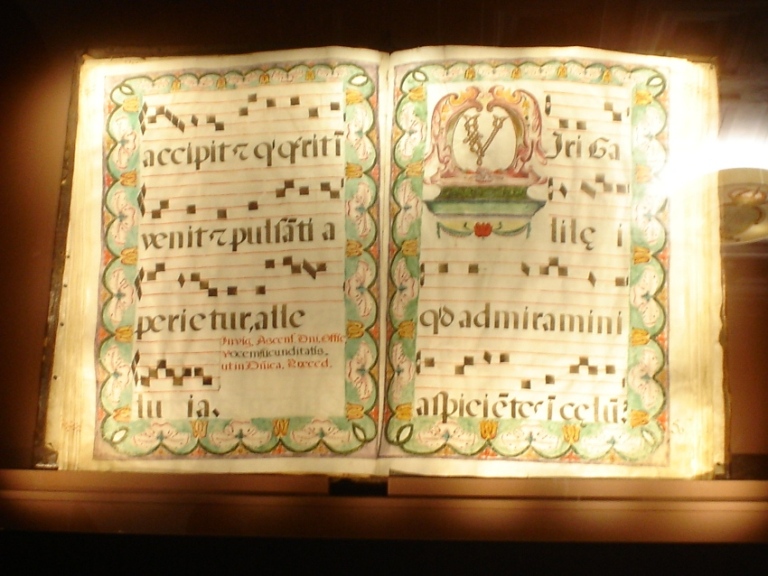 accipit ⁊ q̇ q̇rit ī
venit ⁊ pulsāti a
perietur, alle
In vig. Ascens. Dni. Offic.
voce mjucunditatis.
ut in Dñica. Præced.
lu ia.
V Iri Ga
lilę i
qd admiramini
aſpiciētes ī cęlū?